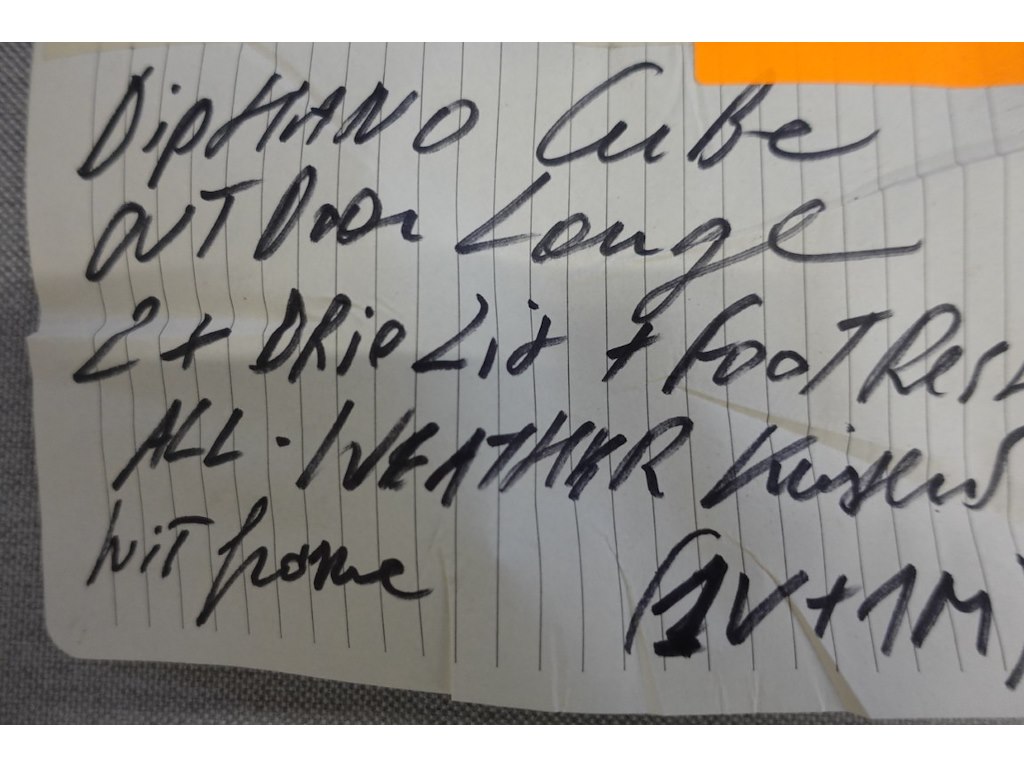 DipHANO Cube
OUTDOOR Longe
2 + DRie Zit + FOOTRest
ALL-WEATHER Kussens
WIT frame (1V+1M)